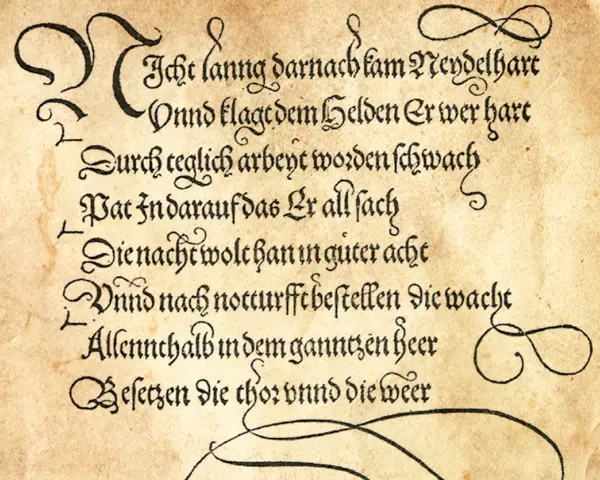 NIcht lanng darnach kam Neydelhart
Vnnd klagt dem Helden Er wer hart
Durch teglich arbeyt worden schwach
Pat In darauf das Er all sach
Die nacht wolt han in gůter acht
Vnnd nach notturfft bestellen die wacht
Allennthalb in dem ganntzen heer
Besetzen die thor vnnd die weer